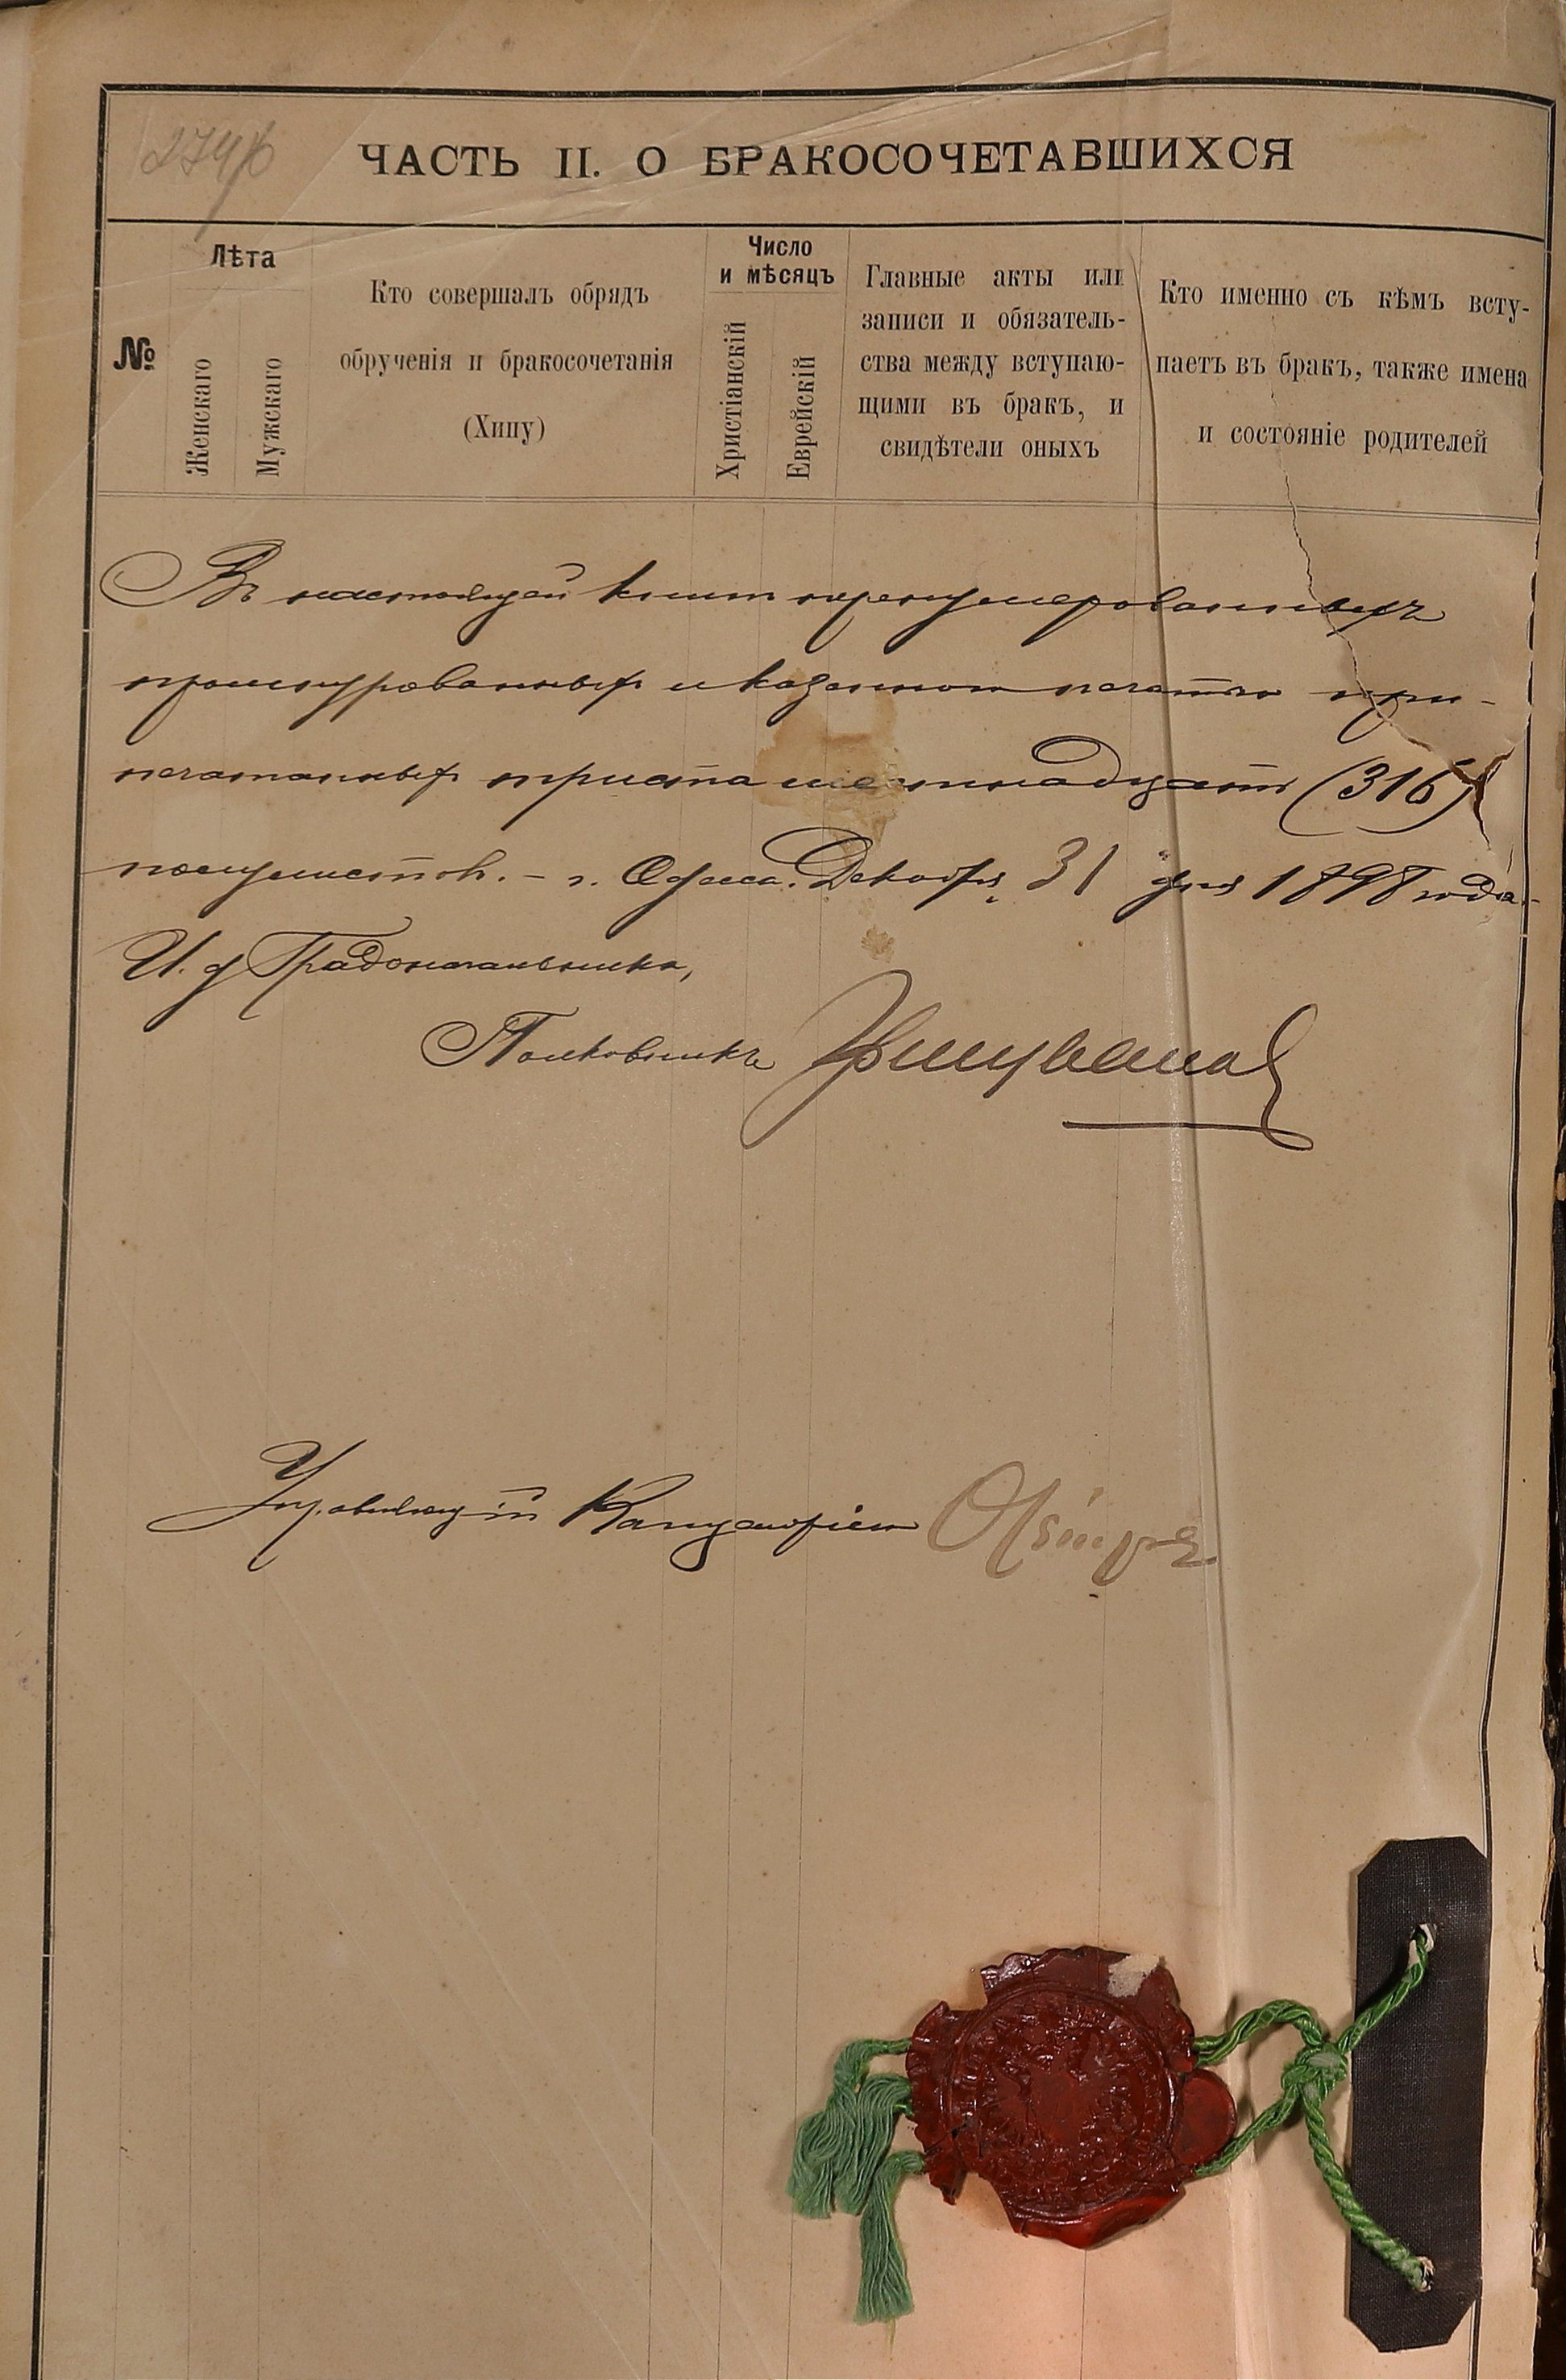 ЧАСТЬ II. О БРАКОСОЧЕТАВШИХСЯ
№
Лѣта
Женскаго
Мужскаго
Кто совершалъ обрядъ
обрученія и бракосочетанія
(Хипу)
Число
и мѣсяцъ
Христіанскій
Еврейскій
Главные акты или
записи и обязатель-
ства между вступаю-
щими въ бракъ, и
свидѣтели оныхъ
Кто именно съ кѣмъ всту-
паетъ въ бракъ, также имена
и состояніе родителей
Въ настоящей книгѣ пренумерованныхъ
прошнурованныхъ и казенною печатью при-
печатанныхъ триста шестнадцать (316)
полулистовъ. - г. Одесса. Декабря 31 дня 1898 года.-
И. д Градоначальника,
Полковникъ
Управляющій Канцеляріею